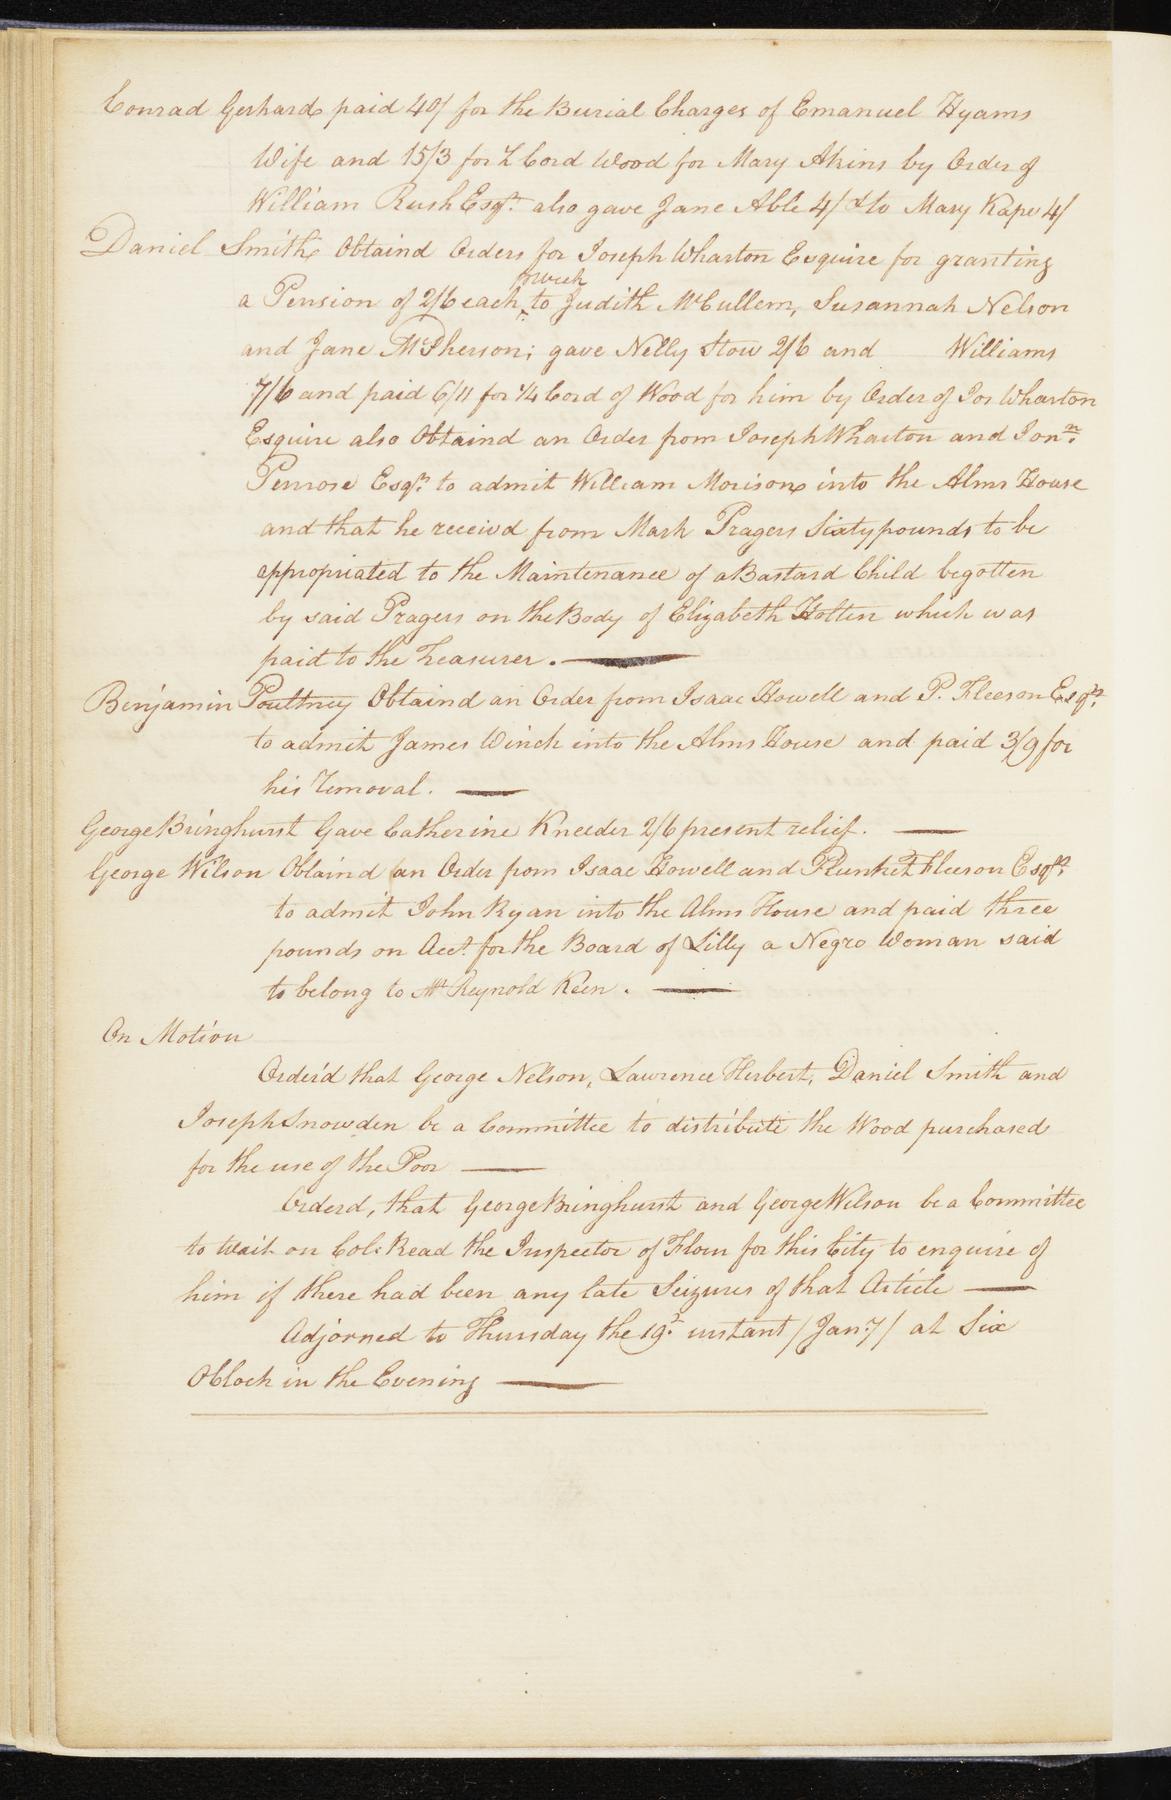 Conrad Gerhard paid 40/ for the Burial Charges of Emanuel Hyams
Wife and 15/3 for ½ Cord Wood for Mary Akins by Order of
William Rush Esqr. also gave Jane Able 4/ & to Mary Kape 4/
Daniel Smith Obtaind Orders for Joseph Wharton Esquire for granting
a Pension of 2/6 each ^ to Judith McCullem, Susannah Nelson
and Jane McPherson; gave Nelly Stow 2/6 and Williams
7/6 and paid 6/11 for ¼ Cord of Wood for him by Order of Jos Wharton
Esquire also Obtaind an Order from Joseph Wharton and Jonn.
Penrose Esqrs. to admit William Morison into the Alms House
and that he receivd from Mark Pragers Sixty pounds to be
appropriated to the Maintenance of a Bastard Child begotten
by said Pragers on the Body of Elizabeth Holten which was
paid to the Treasurer.
Benjamin Poultney Obtaind an Order from Isaac Howell and P. Fleeson Esqrs.
to admit James Winch into the Alms House and paid 3/9 for
his Removal.
George Bringhurst Gave Catherine Kneeder 2/6 present relief.
George Wilson Obtaind an Order from Isaac Howell and Plunket Fleeson Esqrs.
to admit John Ryan into the Alms House and paid three
pounds on Acct. for the Board of Lilly a Negro Woman said
to belong to Mr Reynold Keen.
On Motion
Order'd that George Nelson, Lawrence Herbert, Daniel Smith and
Joseph Snowden be a Committee to distribute the Wood purchased
for the use of the Poor
Orderd, that George Bringhurst and George Wilson be a Committee
to wait on Col: Read the Inspector of Flour for this City to enquire of
him if there had been any late Seizures of that Article
Adjorned to Thursday the 19t. instant / Jany / at Six
OClock in the Evening